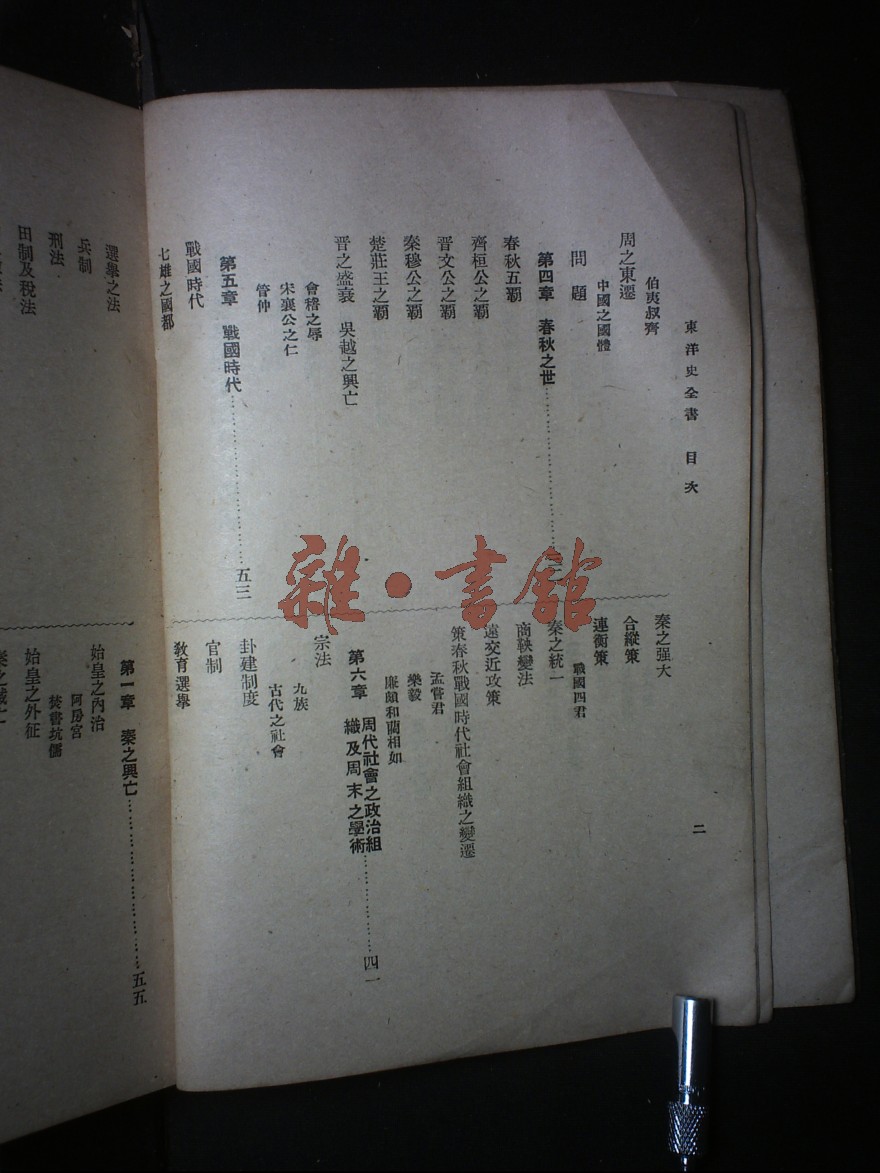 東洋史全書　目次
伯夷叔齊
周之東遷
中國之國體
問題
第四章　春秋之世
春秋五霸
齊桓公之霸
晉文公之霸
秦穆公之霸
楚莊王之霸
晋之盛衰　吳越之興亡
會稽之辱
宋襄公之仁
管仲
第五章　戰國時代……………………五三
戰國時代
七雄之國都
秦之强大
合縱策
連衡策
戰國四君
秦之統一
商鞅變法
遠交近攻策
策春秋戰國時代社會組織之變遷
孟嘗君
樂毅
廉頗和藺相如
第六章　周代社會之政治組
織及周末之學術……………四一
宗法
九族
古代之社會
卦建制度
官制
敎育選舉
二
選舉之法
兵制
刑法
田制及稅法
第一章　秦之興亡……………………五五
始皇之內治
阿房宮
焚書坑儒
始皇之外征
雜·書館